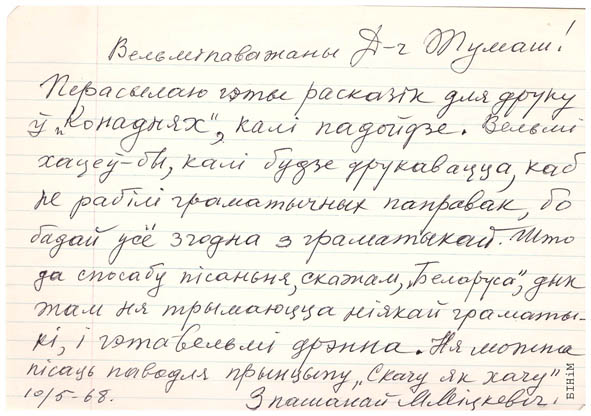 Вельміпаважаны Д-г Тумаш!
Перасылаю гэты расказік для друку
ў „Конаднях", калі падойдзе. Вельмі
хацеў-бы, калі будзе друкавацца, каб
не рабілі граматычных паправак, бо
бадай усё згодна з граматыкай. Што
да способу пісаньня, скажам, „Беларуса", дык
там ня трымаюцца ніякай граматы-
кі, і гэта вельмі дрэнна. Ня можна
пісаць паводля прынцыпу „Скачу як хачу"
10/5-68. З пашанай М.Міцкевіч.
БІНіМ